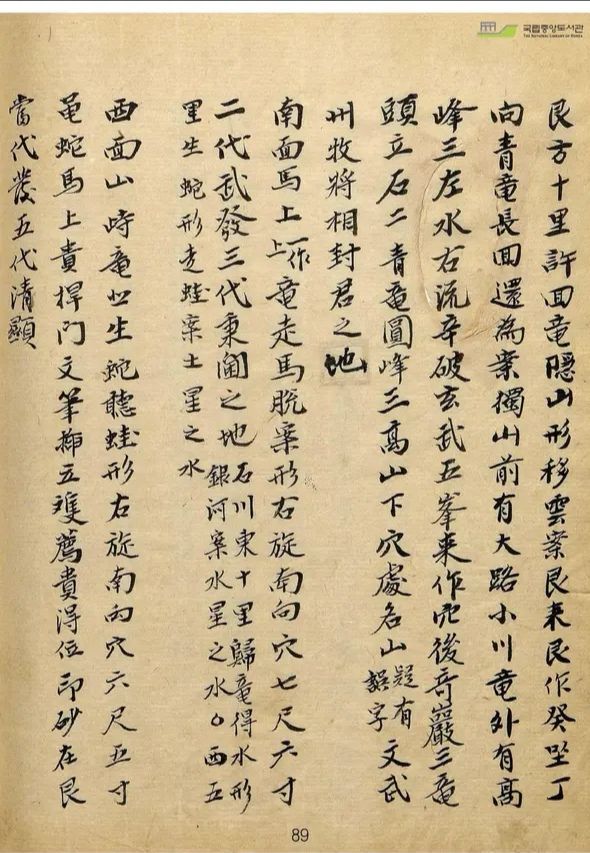 국립중앙도서관
THE NATIONAL LIBRARY OF KOREA
艮方十里許回竜隱山形移雲案艮来艮作癸坐丁
向青竜長回還為案獨山前有大路小川竜外有高
峰三左水右流辛破玄武五峯来作穴後奇巖三竜
頭立石二青竜圓峰三高山下穴處名山疑有誤字文武
州牧將相封君之地
南面馬上一作上竜走馬脫案形右旋南向穴七尺六寸
二代武發三代秉閫之地石川東十里歸竜得水形
銀河案水星之水○西五
里生蛇形走蛙案土星之水
西面山時竜上生蛇聽蛙形右旋南向穴六尺五寸
黾蛇馬上貴捍門文筆揷五雉薦貴得位印砂在艮
當代發五代清顯
89